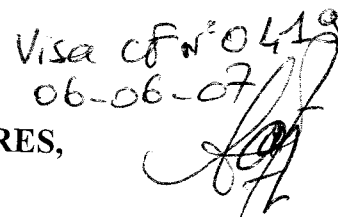 Visa CF N° 0419
06-06-07
RES,